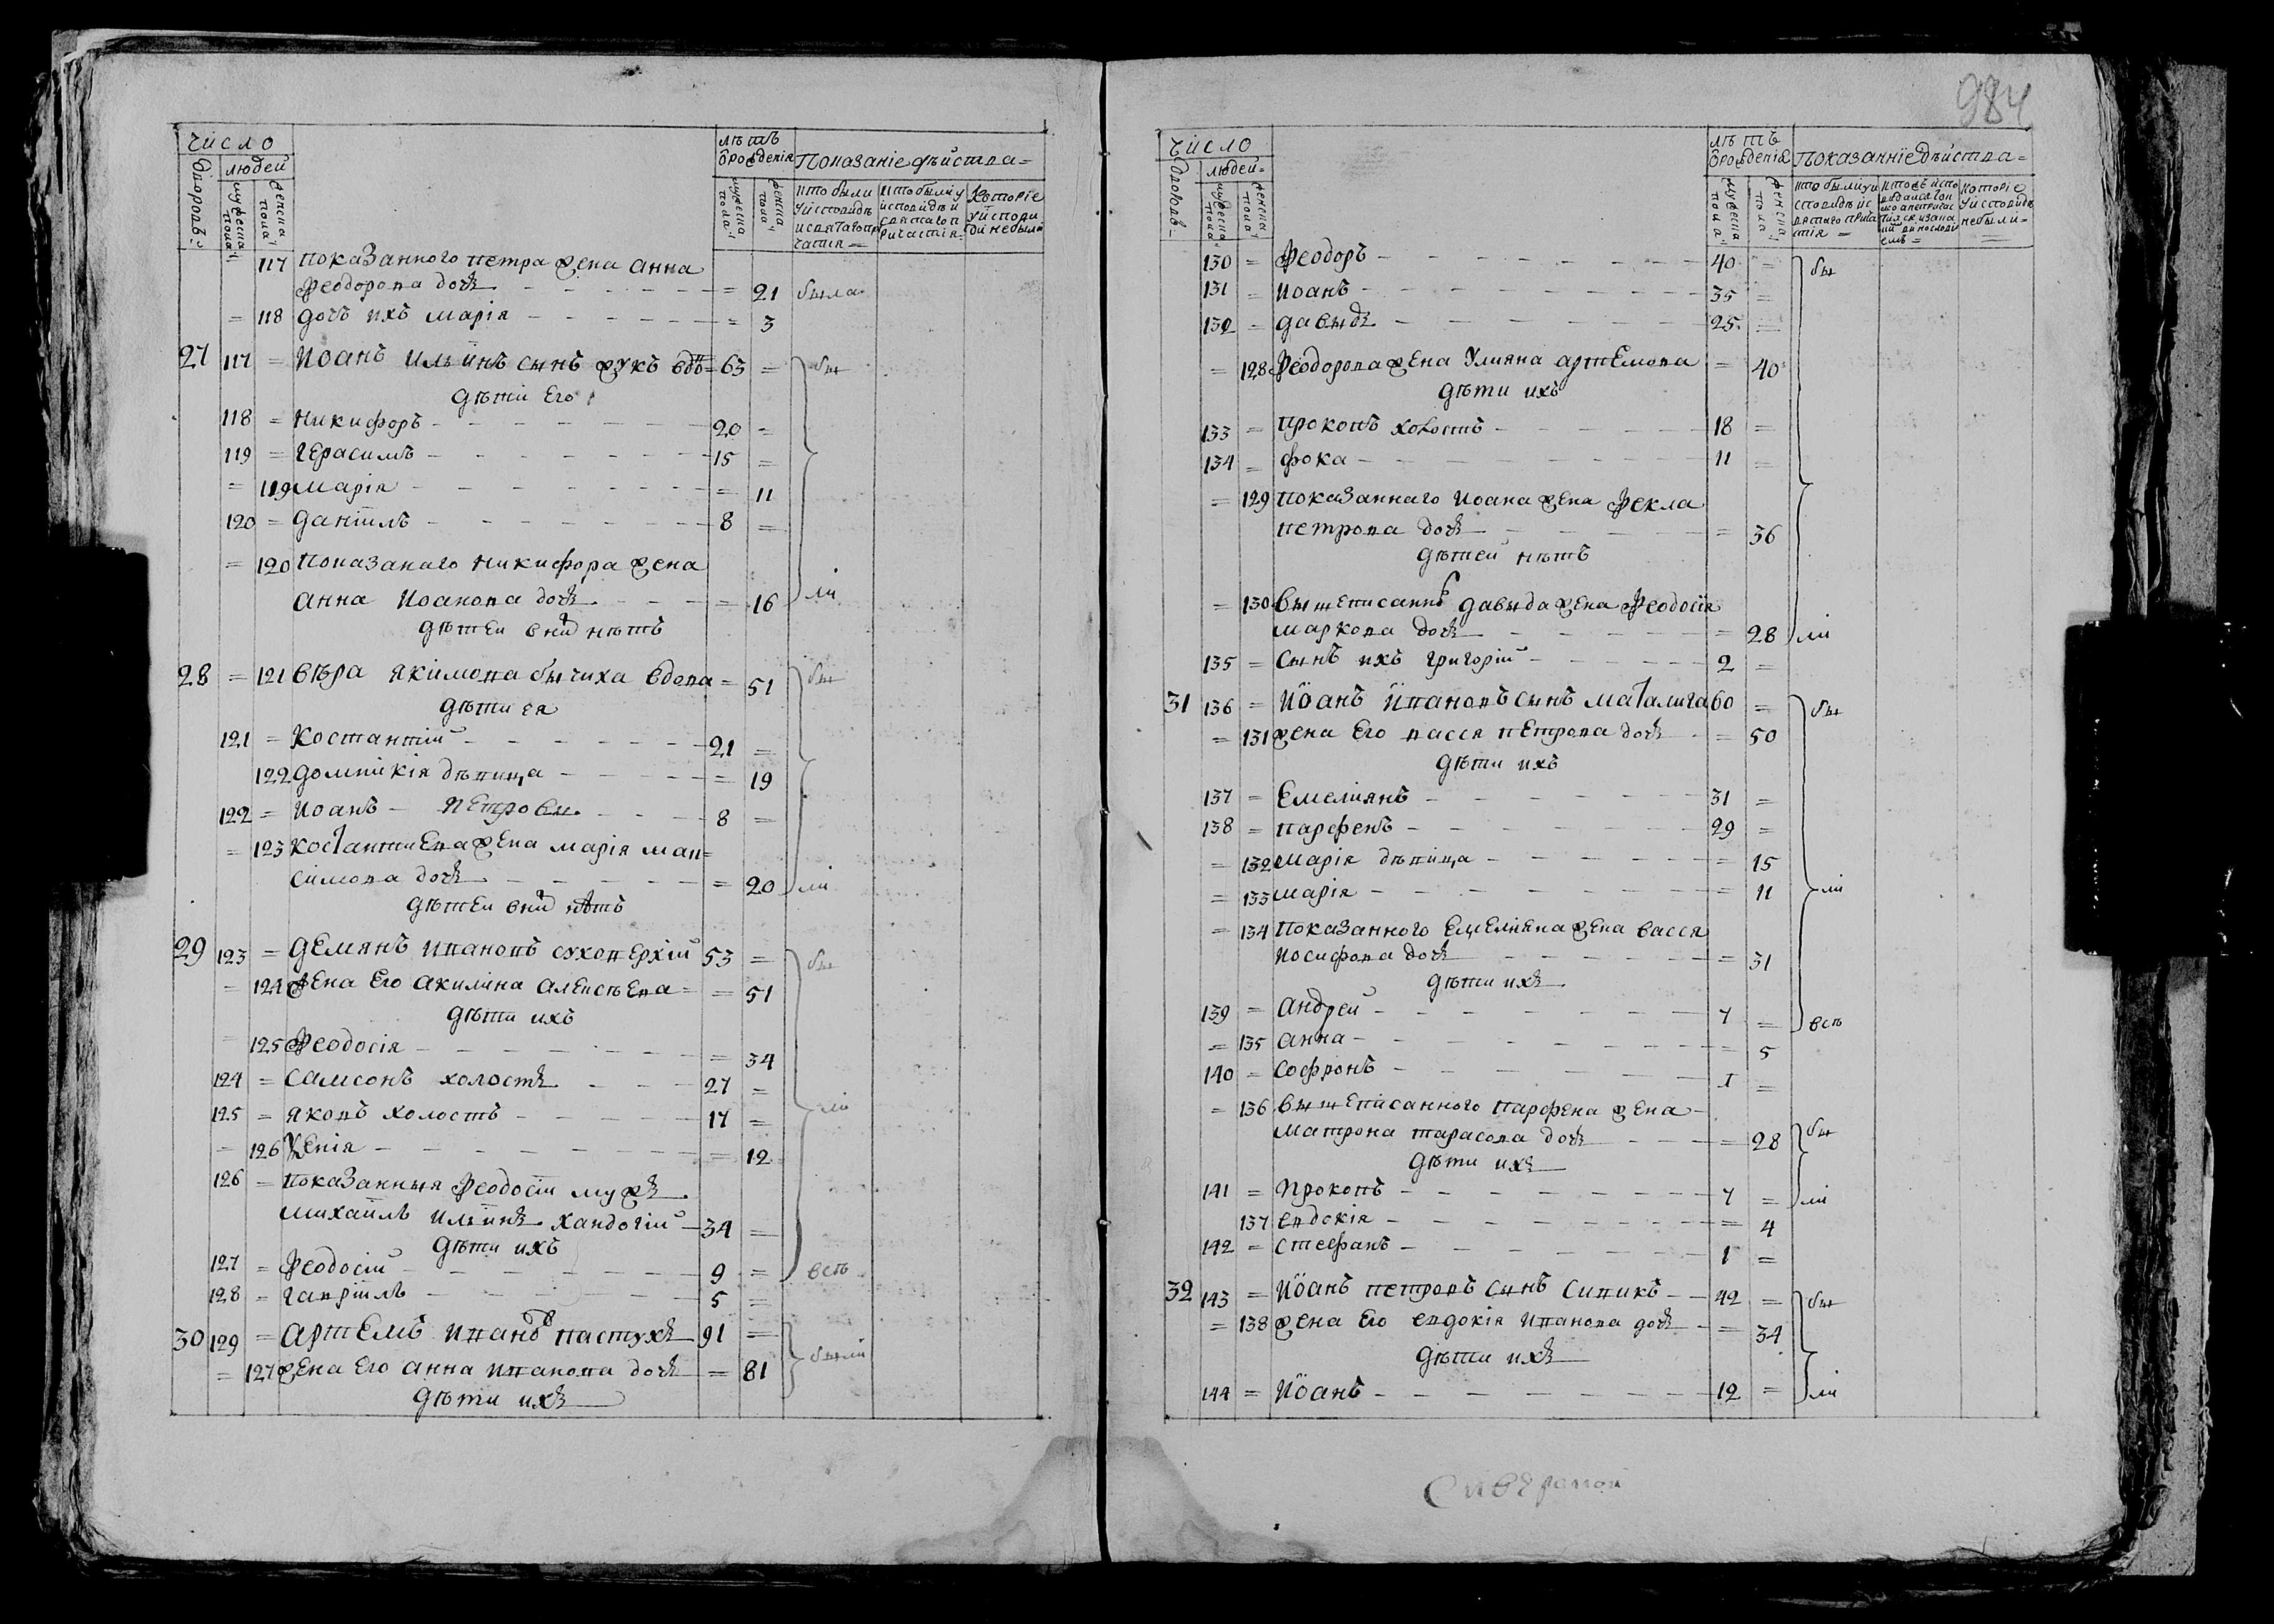 число
дворовъ
людей
мужеска пола
женска пола
лѣтъ
ѿрождения
мужеска пола
женска пола
Показаніе дѣйства =
кто были
у исповѣди
и святаго пр
частія =
кто были у
исповѣди и
святаго п
ричастія =
которіе
у испови
ди небыли
117 показанного петра жена анна
феодорова дочь - = 21 была
= 118 дочь ихъ марія - = 3
27 117 = Иоанъ Ильинъ сынъ жукъ вдов = 65 = бы
дѣти Его
118 = никифоръ - 20 =
119 = герасимъ - 15 =
= 119 марія - = 11
120 = даніилъ - 8 =
= 120 показанаго никифора жена
анна Иоанова дочь - = 16 ли
дѣтей в них нѣтъ
28 = 121 вѣра якимова бычиха вдова = 51 бы
дѣти ея
121 = Костантій - 21 =
122 домникія дѣвица - = 19
122 = Иоанъ - Петровы - 8 =
= 123 костантиева жена марія мак=
симова дочь - = 20 ли
дѣтей в них нѣтъ
29 123 = демянъ ивановъ суховерхій 53 = бы
= 124 жена Его акилина алексѣева = = 51
дѣти ихъ
125 феодосія - = 34
124 = самсонъ холостъ - 27 =
125 = яковъ холостъ - 17 = ли
= 126 Ѯенія - = 12
126 = показанныя феодосіи мужъ
михаилъ ильинъ хандогій - 34 =
дѣти ихъ
127 = феодосій - 9 = всѣ
128 = гавріилъ - 5 =
30 129 = артемъ ивановъ пастухъ 91 =
= 127 жена Его анна иванова дочь = 81 были
дѣти ихъ
984
число
дворовъ =
людей =
мужеска пола
женска пола
лѣтъ
ѿрожденія
мужеска пола
женска пола
Показанніе дѣйства =
кто были у и
сповѣди и с
вятаго прича
стія =
которіе
у исповидѣ
небыли =
130 = феодоръ - 40 = бы
131 = иоанъ - 35 =
132 = давыдъ - 25 =
= 128 феодорова жена Улияна артемова = 40
дѣти ихъ
133 = прокопъ холостъ - 18 =
134 = фока - 11 =
= 129 показаннаго иоана жена фекла
петрова дочь - = 36
дѣтей нѣтъ
= 130 вышеписанно давыда жена феодосія
маркова дочь - = 28 ли
135 = сынъ ихъ григорій - 2 =
31 136 = Иоанъ ивановъ сынъ маталига 60 = бы
= 131 жена Его васса петрова дочь = 50
дѣти ихъ
137 = Емелиянъ - 31 =
138 = парфенъ - 29 =
= 132 марія дѣвица - = 15
= 133 марія - = 11 ли
= 134 показанного емелияна жена васса
иосифова дочь - = 31
дѣти ихъ
139 = андрей - 7 = всѣ
= 135 анна - = 5
140 = софронъ - 1 =
= 136 вышеписанного парфена жена -
матрона тарасова дочь - = 28 бы
дѣти ихъ
141 = прокопъ - 7 = ли
137 евдокія - = 4
142 = стефанъ - 1 =
32 143 = Иоанъ петровъ сынъ сивикъ - 42 = бы
= 138 жена Его евдокія иванова дочь - = 34
дѣти ихъ
144 = Иоанъ - 12 = ли